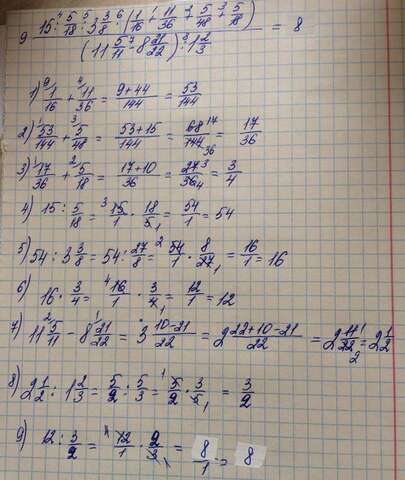 9 15 :⁴ 5/18 :⁵ 3 3/8 ·⁶ (1/16 +¹ 11/36 +² 5/48 +³ 5/18) / (11 5/11 -⁷ 8 21/22) :⁸ 1 2/3 = 8
1) 1/16 + 11/36 = 9+44/144 = 53/144
2) 53/144 + 5/48 = 53+15/144 = 68/144 = 17/36
3) 17/36 + 5/18 = 17+10/36 = 27/36 = 3/4
4) 15 : 5/18 = 15/1 · 18/5 = 54/1 = 54
5) 54 : 3 3/8 = 54 : 27/8 = 54/1 · 8/27 = 16/1 = 16
6) 16 · 3/4 = 16/1 · 3/4 = 12/1 = 12
7) 11 5/11 - 8 21/22 = 3 10-21/22 = 2 22+10-21/22 = 2 11/22 = 2 1/2
8) 2 1/2 : 1 2/3 = 5/2 : 5/3 = 5/2 · 3/5 = 3/2
9) 12 : 3/2 = 12/1 · 2/3 = 8/1 = 8